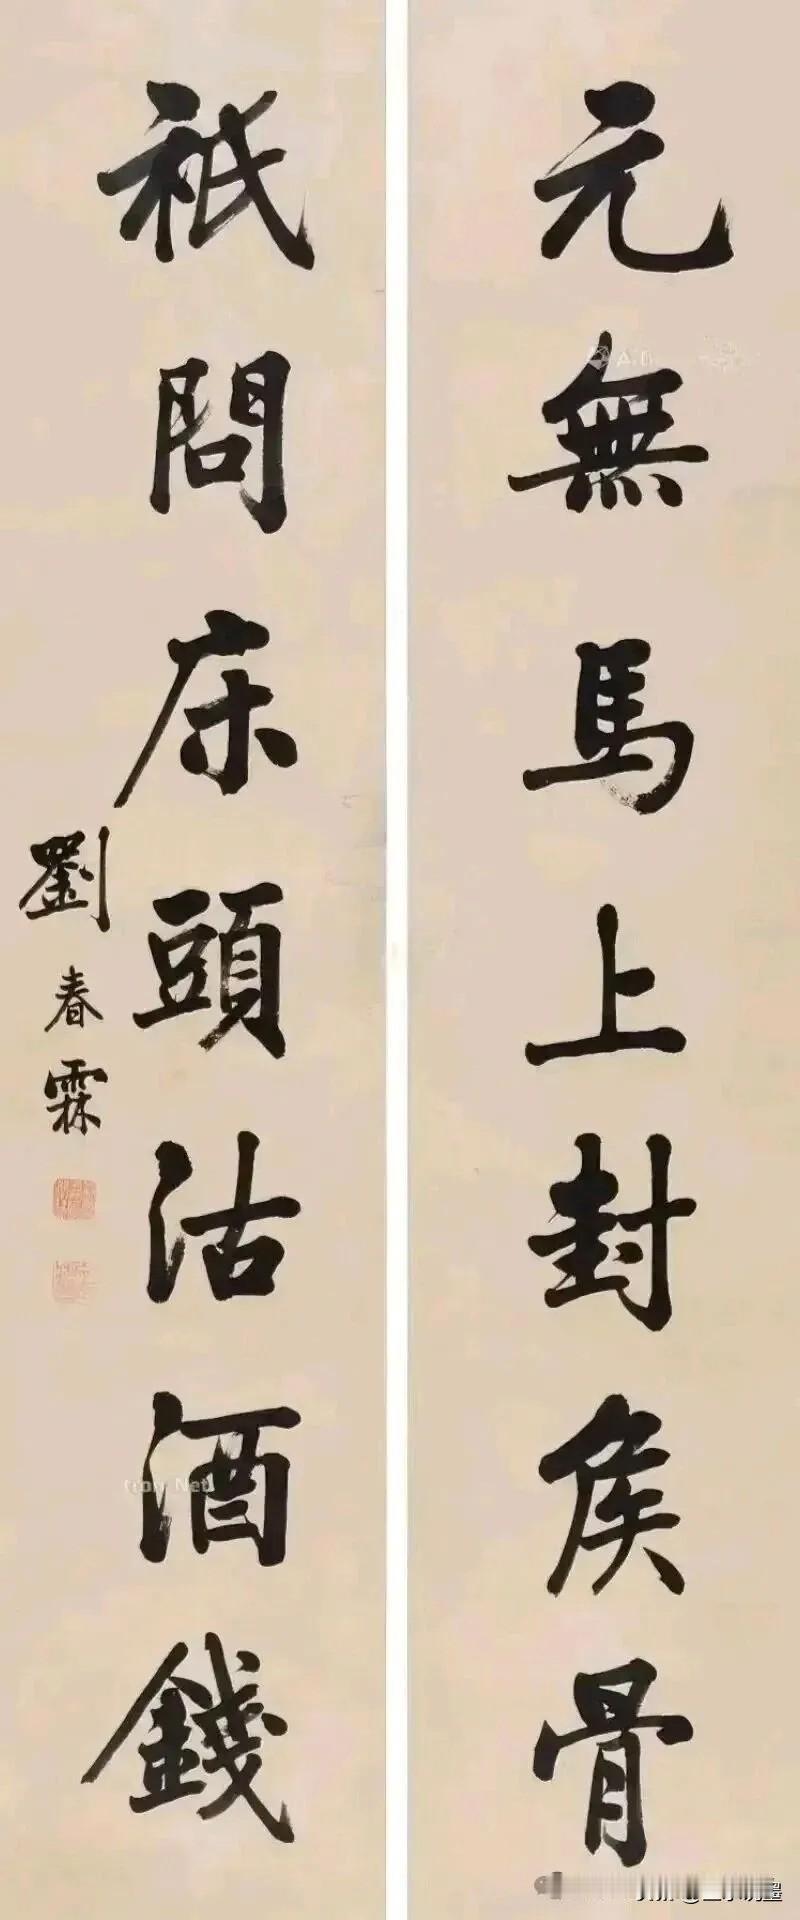 元無馬上封侯骨
祇問床頭沽酒錢
劉春霖